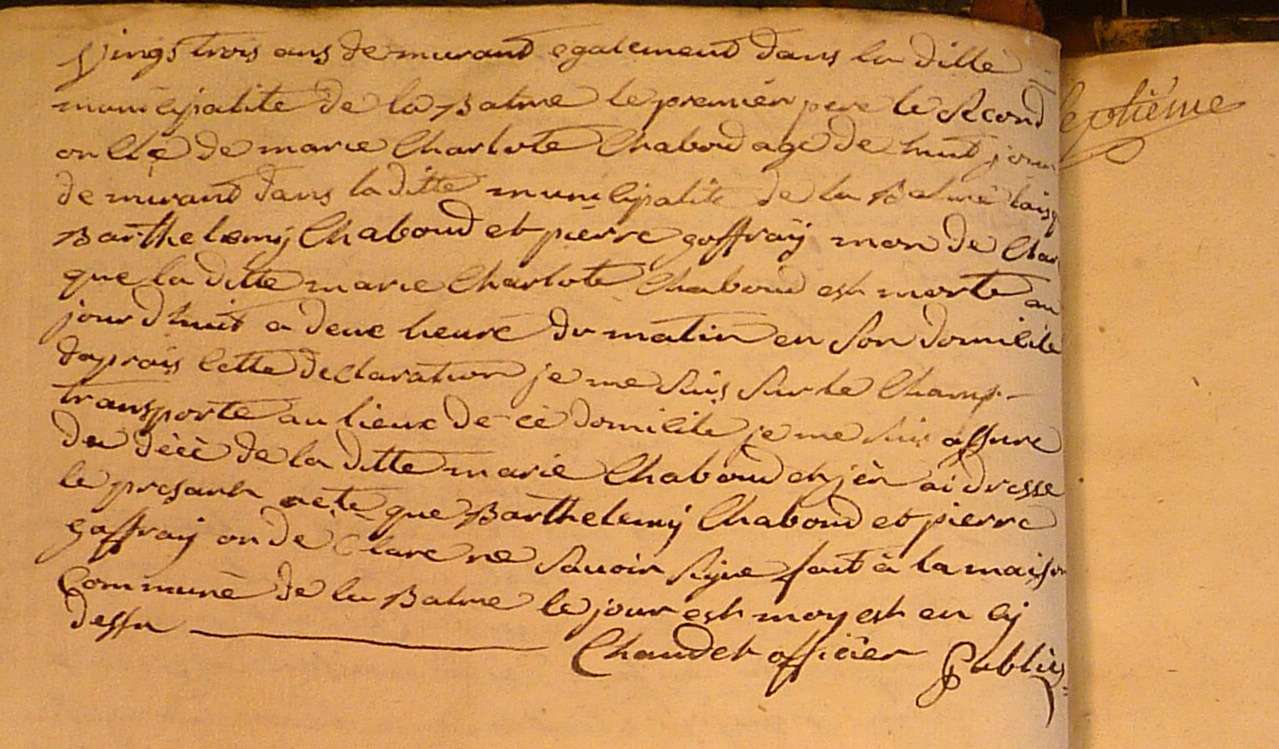 Vings trois ans demurant egalement dans la ditte
municipalite de la Balme le premier pere le second
oncle de marie Charlote Chaboud age de huit jour
demurant dans la ditte municipalite de la Balme
Barthelemy Chaboud et pierre goffray mon de Clar
que la ditte marie Charlote Chaboud est morte au
jourdhuit a deux heure du matin en son domicile
daprais cette declaration je me suis sur le champ
transporte au lieux de ce domicile je me suis assure
du décè de la ditte marie Chaboud et jen ai dresse
le presant acte que Barthelemy Chaboud et pierre
goffray on de Clare ne savoir signe fait à la maison
Commune de la Balme le jour est moy est an cy
dessu
Chaudet officier Public
eptième